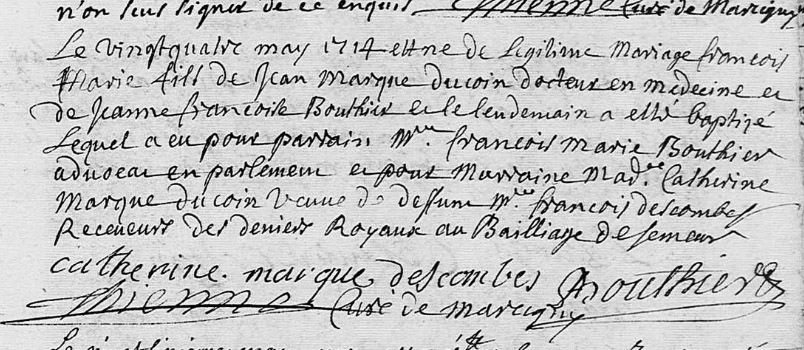 n'on sceu signer de ce enquis Curé de Marcigny
Le vingtquatre may 1714 est né de legitime Mariage françois
Marie fils de Jean Marque ducoin docteur en medecine et
de Jeanne françoise Bouthier et le lendemain a esté baptizé
Lequel a eu pour parrain Mre françois marie Bouthier
advocat en parlement et pour Marraine Made Catherine
Marque ducoin veuve de deffunt Mre françois descombes
Receveur des deniers Royaux au Bailliage de semeur
catherine. marque descombes Bouthier
Curé de marcigny